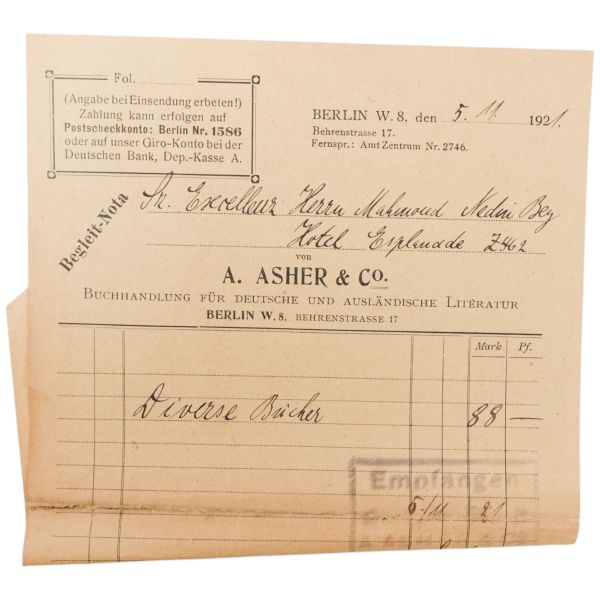 Fol.
(Angabe bei Einsendung erbeten!)
Zahlung kann erfolgen auf
Postscheckkonto: Berlin Nr. 1586
oder auf unser Giro-Konto bei der
Deutschen Bank, Dep.-Kasse A.
BERLIN W. 8, den 5. 11. 1921.
Behrenstrasse 17.
Fernspr.: Amt Zentrum Nr. 2746.
Begleit-Nota
Sr. Excellenz Herrn Mahmoud Nedin Bey
Hotel Esplanade Z 462
von
A. ASHER & Co.
BUCHHANDLUNG FÜR DEUTSCHE UND AUSLÄNDISCHE LITERATUR
BERLIN W. 8, BEHRENSTRASSE 17
Mark Pf.
Diverse Bücher 88 —
Empfangen
5/11 21